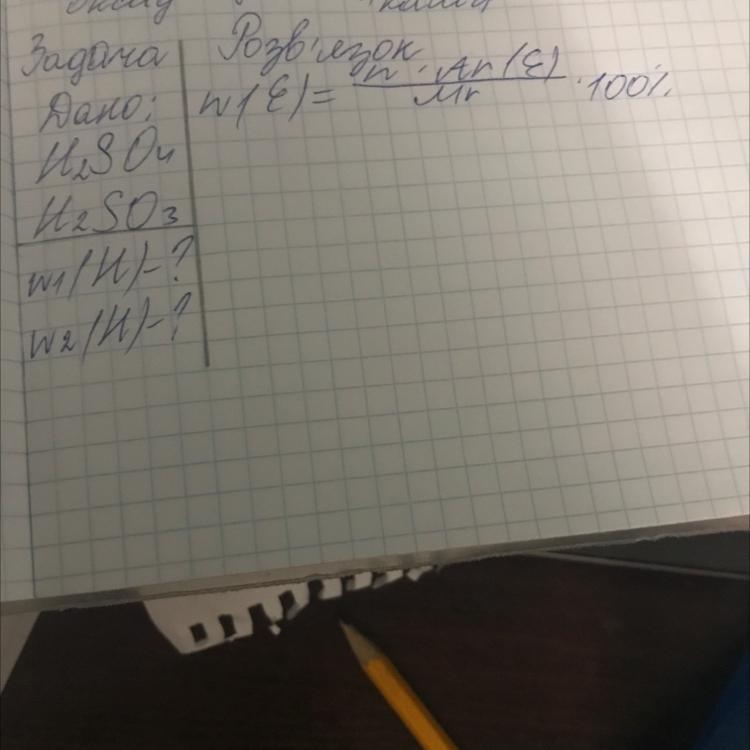 Задача
Дано:
H2SO4
H2SO3
w1(H)-?
w2(H)-?
Розв'язок
w(E)= n · Ar(E) / Mr · 100%